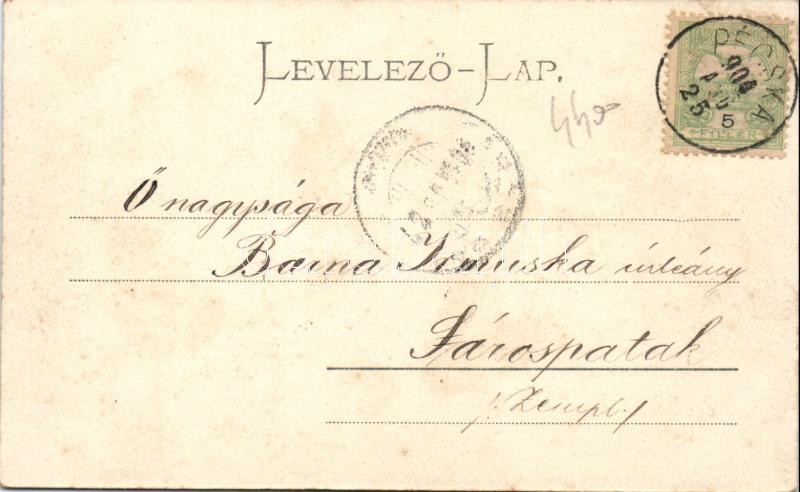 LEVELEZŐ-LAP.
PÉCSKA
904
AUG
25
5
FILLÉR
440
Ő nagysága
Barna Irmuska úrleány
Sárospatak
/: Zempl. :/